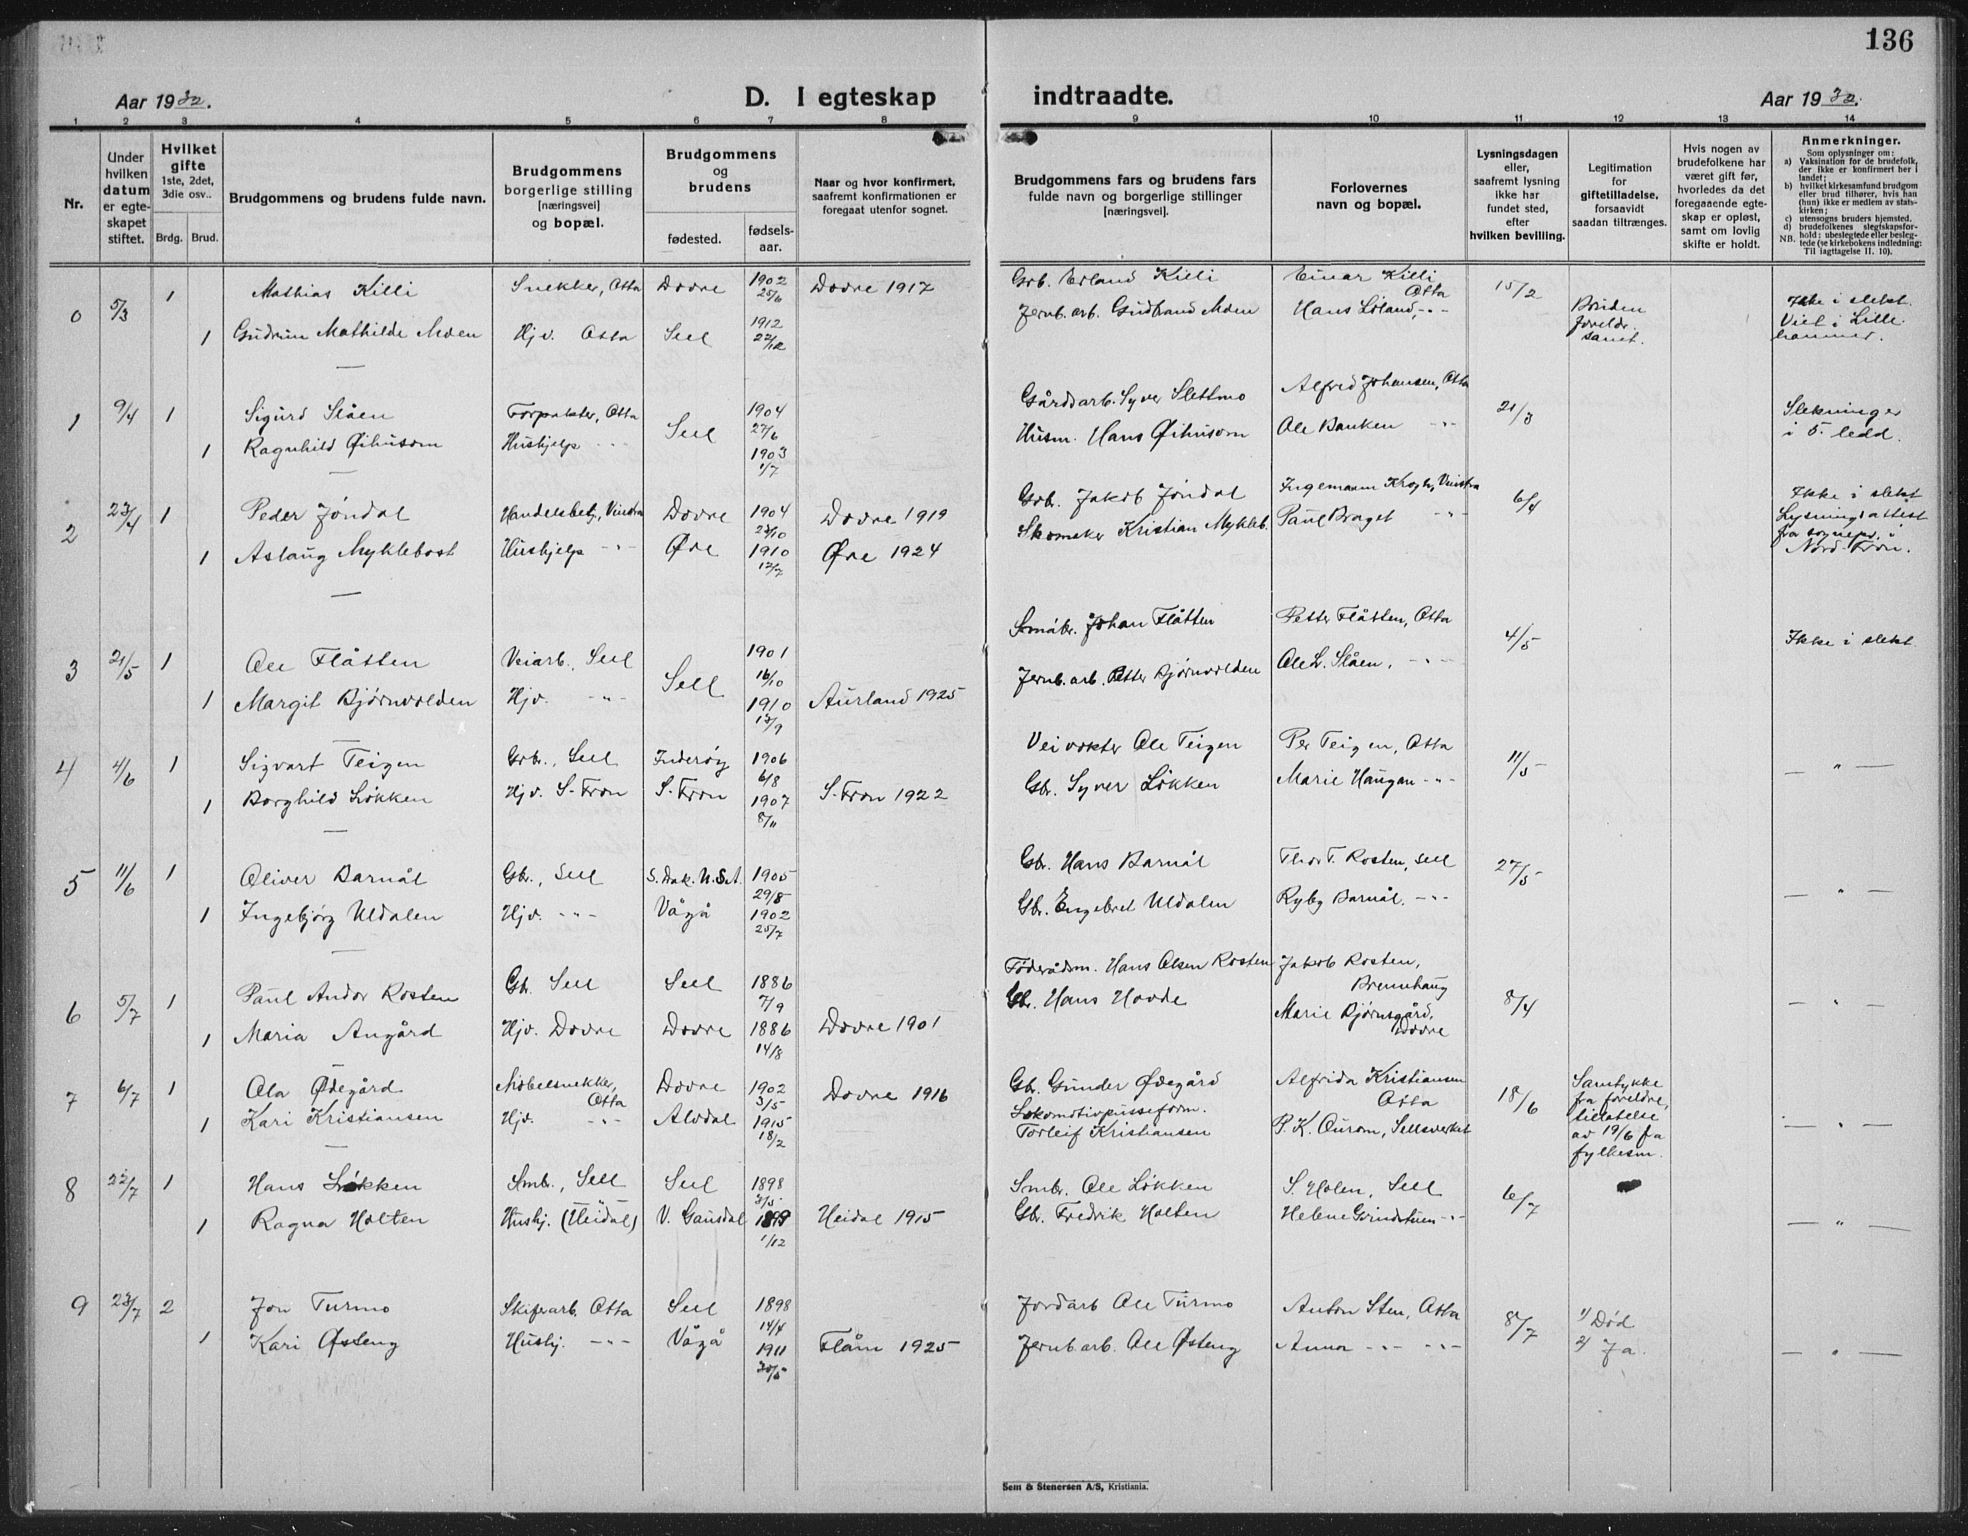 136
Aar 1932.
D. I egteskap
indtraadte.
Aar 1932.
1 2 3 4 5 6 7 8 9 10 11 12 13 14
Nr.
Under hvilken datum er egte-skapet stiftet.
Hvilket gifte
1ste, 2det, 3die osv..
Brdg. Brud.
Brudgommens og brudens fulde navn.
Brudgommens borgerlige stilling [næringsvei] og bopæl.
Brudgommens og brudens
fødested.
fødsels-aar.
Naar og hvor konfirmert, saafremt konfirmationen er foregaat utenfor sognet.
Brudgommens fars og brudens fars fulde navn og borgerlige stillinger [næringsvei].
Forlovernes navn og bopæl.
Lysningsdagen eller, saafremt lysning ikke har fundet sted, efter hvilken bevilling.
Legitimation for giftetilladelse, forsaavidt saadan tiltrænges.
Hvis nogen av brudefolkene har været gift før, hvorledes da det foregaaende egte-skap er opløst, samt om lovlig skifte er holdt.
Anmerkninger.
Som oplysninger om:
a) Vaksination for de brudefolk, der ikke er konfirmert her i landet;
b) hvilket kirkesamfund brudgom eller brud tilhører, hvis han (hun) ikke er medlem av stats-kirken;
c) utensogns bruders hjemsted.
d) brudefolkenes slegtskapsfor-hold: ubeslegtede eller besleg-tede (se kirkebokens indledning:
NB. Til iagttagelse II. 10).
0 5/3 1 Mathias Killi Snekker, Otta Dovre 1902 25/6 Dovre 1917 Grb. Erland Killi Einar Killi Otta 15/2 Ikke i slekt.
1 Gudrun Mathilde Moen Hjv. Otta Sell 1912 22/12 Jernb. arb. Gudbrand Moen Hans Löland, -"- Bruden foreldr. samt. Viet i Lillehammer.
1 9/4 1 Sigurd Slåen Forpakter, Otta Sell 1904 27/6 Gårdsarb. Syver Slettmo Alfred Johansen, Otta 21/3 Slekninger i 5. ledd.
1 Ragnhild Øihusom Hushjelp -"- 1903 1/7 Husm. Hans Øihusom Ole Banken -"-
2 23/4 1 Peder Jöndal Handelsbetj., Vinstra Dovre 1904 23/10 Dovre 1919 Grb. Jakob Jöndal Ingemann Krogh, Vinstra 6/4 Ikke i slekt
1 Aslaug Myklebost Hushjelp -"- Øre 1910 12/7 Øre 1924 Skomaker Kristian Mykleb. Paul Braget -"- Lysningsattest fra sognepr. i Nord-Fron.
3 21/5 1 Ole Flåtten Veiarb., Sell Sell 1901 16/10 Småbr. Johan Flåtten Petter Flåtten, Otta 4/5 Ikke i slekt
1 Margit Bjørnvolden Hjv. -"- 1910 13/9 Aurland 1925 Jernb. arb. Petter Bjørnvolden Ole L. Slåen, -"-
4 4/6 1 Sigvart Teigen Grbr., Sell Inderøy 1906 6/8 Vei vokter Ole Teigen Per Teigen, Otta 11/5 — " —
1 Borghild Løkken Hjv. S-Fron S. Fron 1907 8/11 S. Fron 1922 Gbr. Syver Løkken Marie Haugan -"-
5 11/6 1 Oliver Barnål Gbr., Sell S. Dak. U.S.A. 1905 29/8 Gbr. Hans Barnål Thor T. Rosten, Sell 27/5 — " —
1 Ingebjørg Uldalen Hjv. -"- Vågå 1902 25/7 Gbr. Engebret Uldalen Ryby Barnål -"-
6 5/7 1 Paul Andor Rosten Gb. Sell Sell 1886 7/9 Föderådsm. Hans Olsen Rosten Jakob Rosten, Brennhaug 8/4 — " —
1 Maria Angård Hjv. Dovre Dovre 1886 14/8 Dovre 1901 Gbr. Hans Hovde Marie Bjørnsgård, Dovre
7 6/7 1 Ola Ødegård Møbelsnekker, Otta Dovre 1902 3/5 Dovre 1916 Gb. Gunder Ødegård Alfrida Kristiansen Otta 18/6 Samtykke fra foreldre, tillatelse av 19/6 fra fylkesm. — " —
1 Kari Kristiansen Hjv. -"- Alvdal 1915 18/2 Lokomotivpusseform. Torleif Kristiansen P. K. Ourom, Sellsverket
8 22/7 1 Hans Løkken Smbr., Sell Sell 1898 3/5 Smbr. Ole Løkken S. Holen, Sell 6/7 — " —
1 Ragna Holten Hushj. (Heidal) V. Gausdal 1899 1/12 Heidal 1915 Gbr. Fredrik Holten Helene Grindstuen -"-
9 23/7 2 Jon Turmo Skiferarb. Otta Sell 1898 14/4 Jordarb Ole Turmo Anton Sten, Otta 8/7 1/ Död
1 Kari Østeng Hushj. -"- Vågå 1911 30/5 Flåm 1925 Jernb. arb. Ole Østeng Anna -"- -"- 2/ Ja. — " —
Sem & Stenersen A/S, Kristiania.